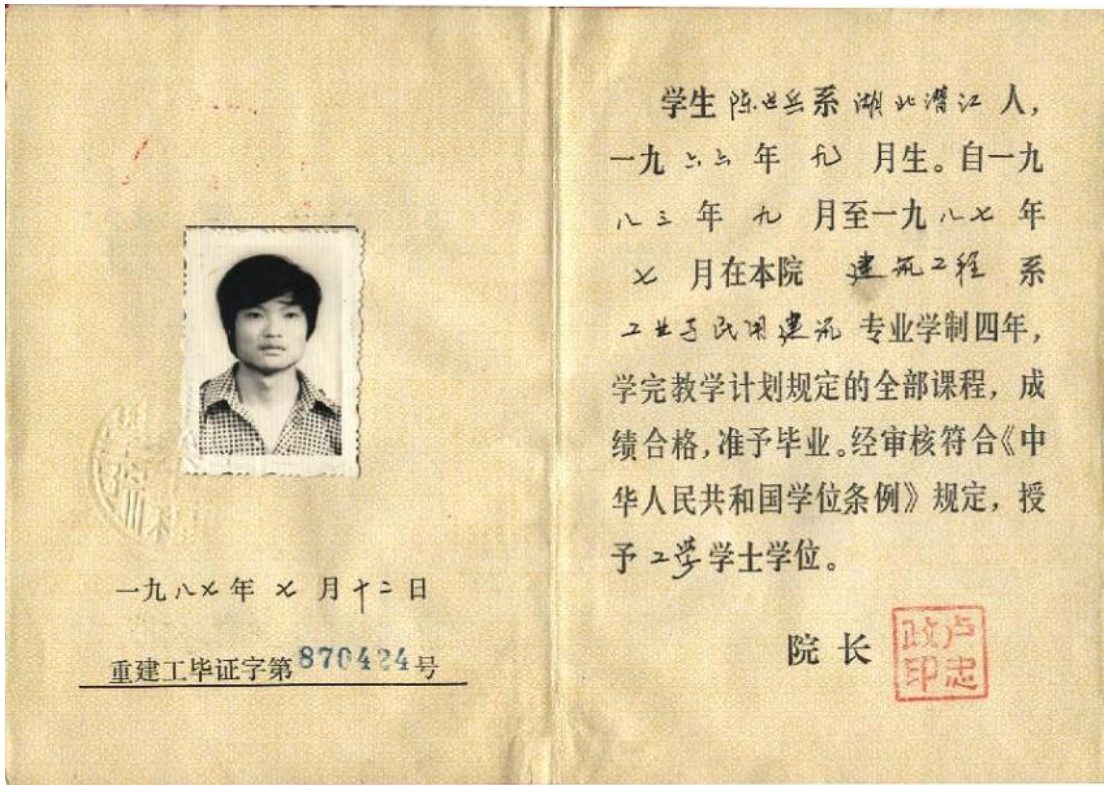 一九八七年七月十二日
重建工毕证字第870424号
学生陈世岳系湖北潜江人，
一九六六年九月生。自一九
八三年九月至一九八七年
七月在本院建筑工程系
工业与民用建筑专业学制四年，
学完教学计划规定的全部课程，成
绩合格，准予毕业。经审核符合《中
华人民共和国学位条例》规定，授
予工学学士学位。
院长
卢忠政印